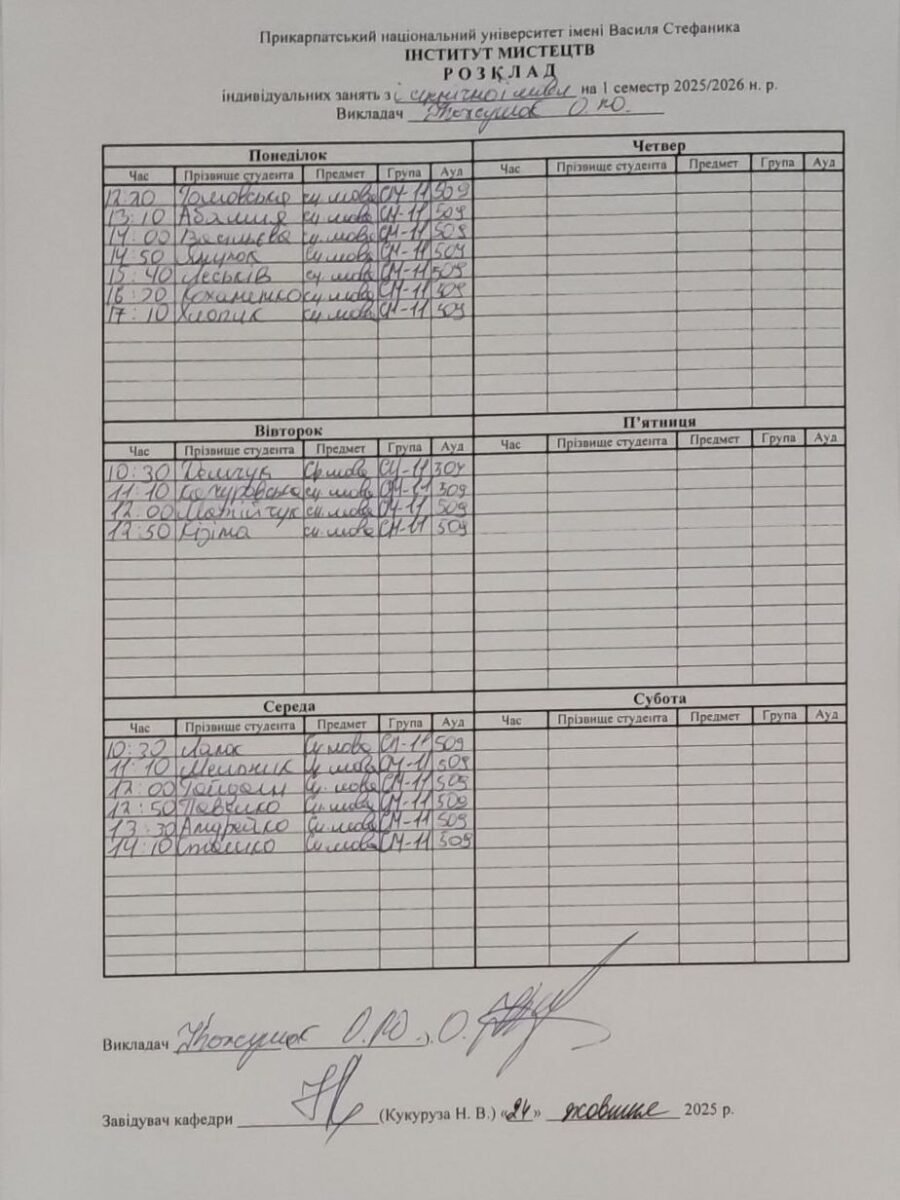 Прикарпатський національний університет імені Василя Стефаника
ІНСТИТУТ МИСТЕЦТВ
Р О З К Л А Д
індивідуальних занять з сценічної мови на 1 семестр 2025/2026 н. р.
Викладач О. Ю.
Понеділок
Час Прізвище студента Предмет Група Ауд
12:20 сц. мова СМ-11 509
13:10 сц. мова СМ-11 509
14:00 Васильєва сц. мова СМ-11 509
14:50 Яцунок сц. мова СМ-11 509
15:40 Леськів сц. мова СМ-11 509
16:20 Коханенко сц. мова СМ-11 509
17:10 Хлопик сц. мова СМ-11 509
Вівторок
Час Прізвище студента Предмет Група Ауд
10:30 Демчук сц. мова СМ-11
11:10 сц. мова СМ-11 509
12:00 Матійчук сц. мова СМ-11 509
12:50 Кізіма сц. мова СМ-11 509
Середа
Час Прізвище студента Предмет Група Ауд
10:30 сц. мова СМ-11 509
11:10 Мельник сц. мова СМ-11 509
12:00 сц. мова СМ-11 509
12:50 Павлико сц. мова СМ-11 509
13:30 Андрейко сц. мова СМ-11 509
14:10 сц. мова СМ-11 509
Четвер
Час Прізвище студента Предмет Група Ауд
П’ятниця
Час Прізвище студента Предмет Група Ауд
Субота
Час Прізвище студента Предмет Група Ауд
Викладач О.Ю.
Завідувач кафедри (Кукуруза Н. В.) «24» жовтня 2025 р.